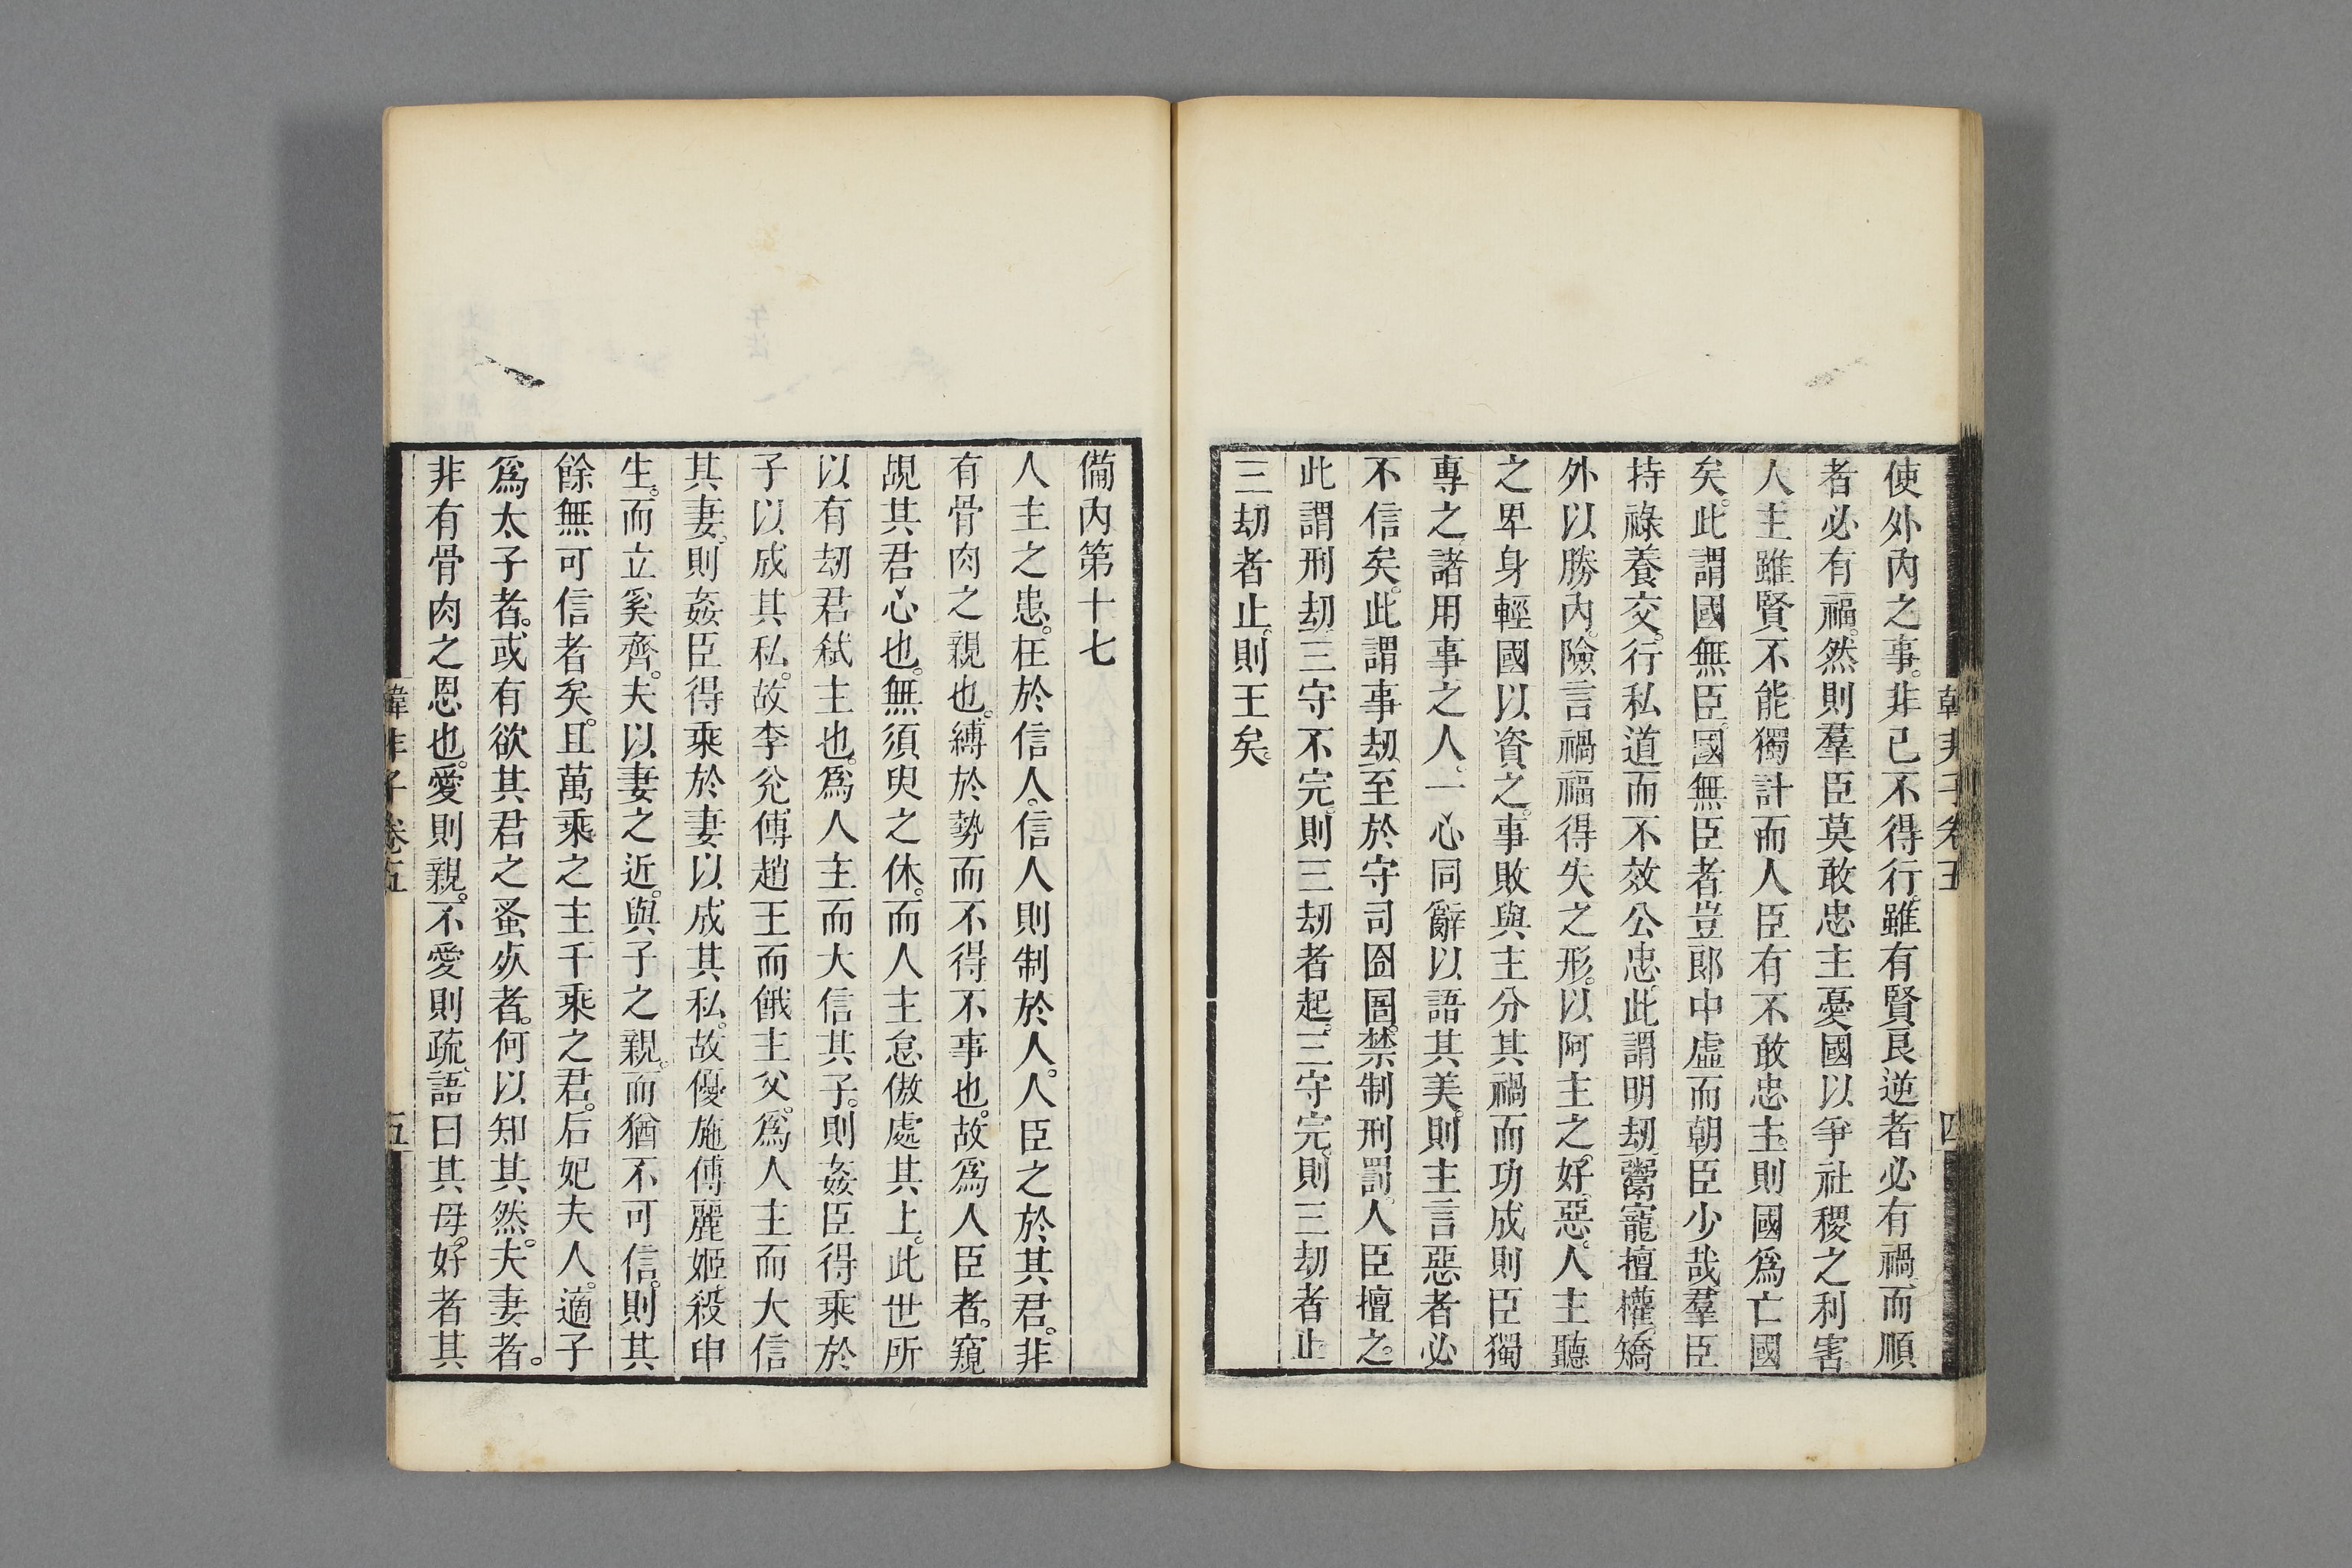 韓非子卷五
四
使外內之事。非己不得行。雖有賢良、逆者必有禍、而順
者必有福。然則羣臣莫敢忠主憂國以爭社稷之利害。
人主雖賢不能獨計而人臣有不敢忠主。則國爲亡國
矣。此謂國無臣。國無臣者豈郎中虛而朝臣少哉。羣臣
持祿養交。行私道而不效公忠。此謂明刼。鬻寵擅權。矯
外以勝內。險言禍福得失之形。以阿主之好惡。人主聽
之卑身輕國以資之。事敗與主分其禍而功成則臣獨
專之。諸用事之人。一心同辭以語其美。則主言惡者必
不信矣。此謂事刼。至於守司囹圄。禁制刑罰。人臣擅之。
此謂刑刼。三守不完。則三刼者起。三守完。則三刼者止。
三刼者止。則王矣。
備內第十七
人主之患。在於信人。信人則制於人。人臣之於其君。非
有骨肉之親也。縛於勢而不得不事也。故爲人臣者。窺
覘其君心也。無須臾之休。而人主怠傲處其上。此世所
以有刼君弑主也。爲人主而大信其子。則姦臣得乘於
子以成其私。故李兊傅趙王而餓主父。爲人主而大信
其妻。則姦臣得乘於妻以成其私。故優施傅麗姬殺申
生。而立奚齊。夫以妻之近。與子之親。而猶不可信。則其
餘無可信者矣。且萬乘之主千乘之君。后妃夫人。適子
爲太子者。或有欲其君之蚤死者。何以知其然。夫妻者。
非有骨肉之恩也。愛則親。不愛則疏。語曰其母好者其
韓非子卷五
五